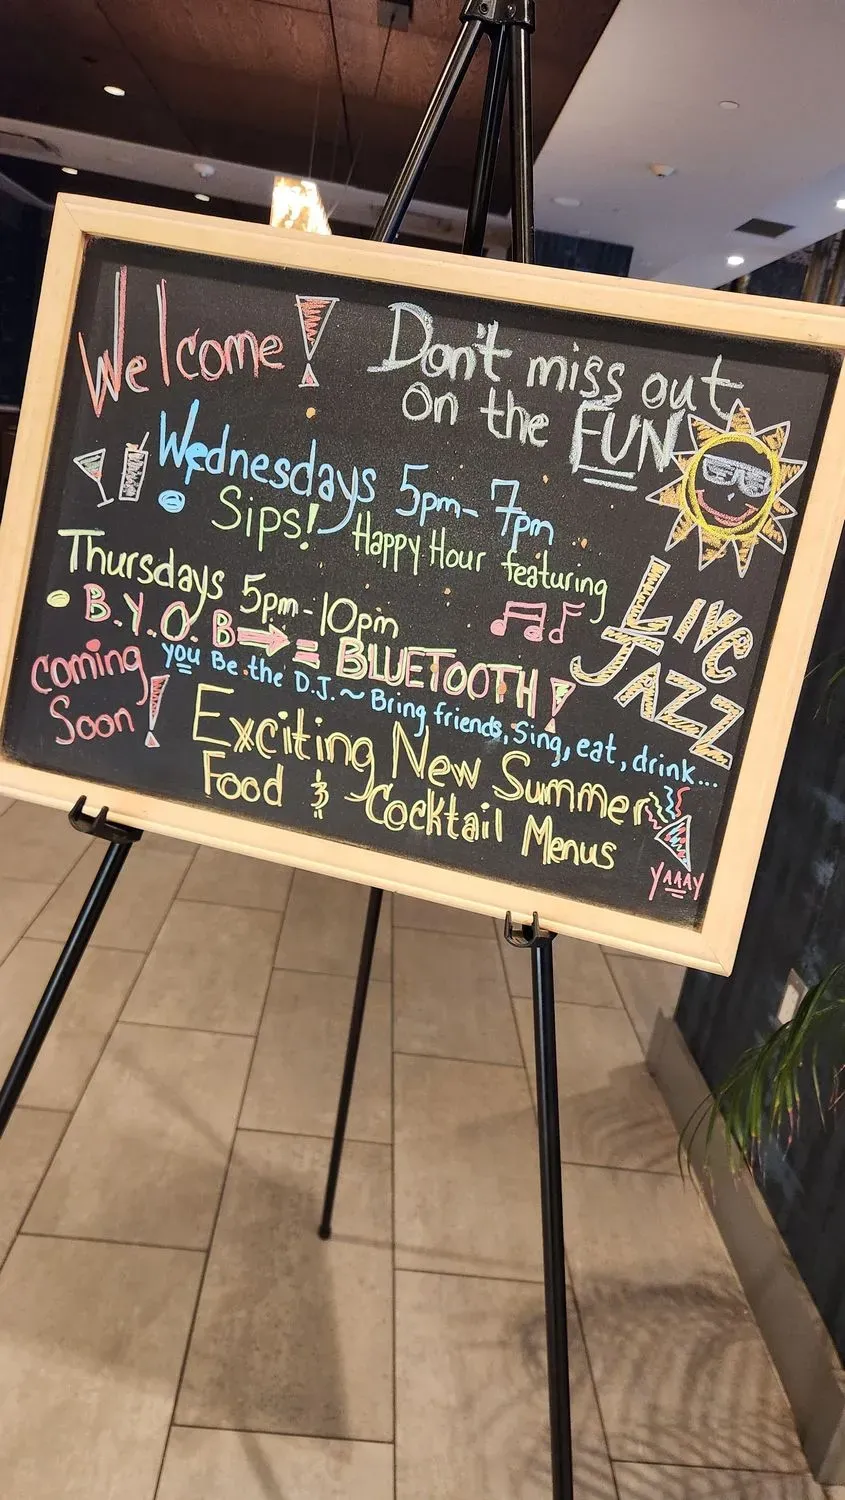 Welcome!
Don't miss out
on the FUN
Wednesdays 5pm-7pm
Sips! Happy Hour featuring
LIVE
JAZZ
Thursdays 5pm-10pm
B.Y.O.B → = BLUETOOTH!
you Be the D.J. ~ Bring friends, Sing, eat, drink...
Coming
Soon!
Exciting New Summer
Food & Cocktail Menus
YAAAY